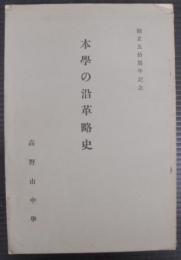 創立五拾周年記念
本學の沿革略史
高野山中學